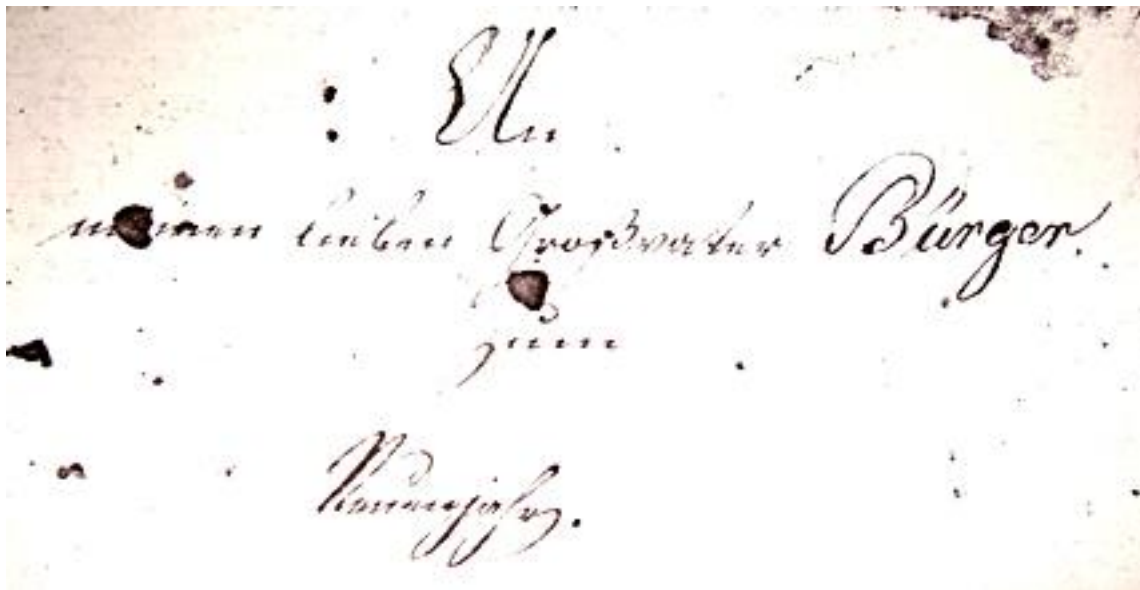 An
meinen lieben Großvater Bürger.
zum
Neuenjahr.